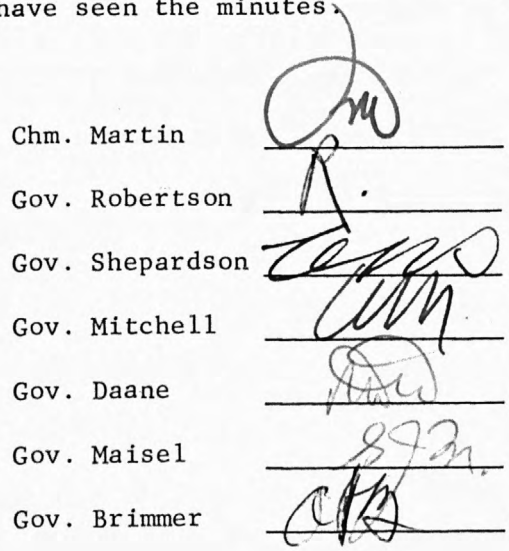 have seen the minutes.
Chm. Martin
Gov. Robertson R.
Gov. Shepardson
Gov. Mitchell
Gov. Daane
Gov. Maisel SJM.
Gov. Brimmer